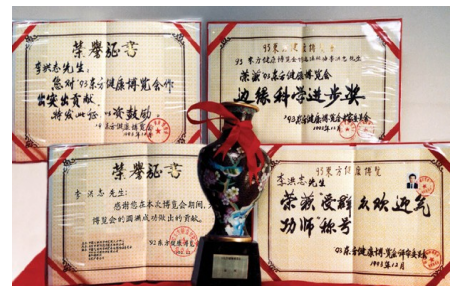 荣誉证书
李洪志先生:
您对'93东方健康博览会作
出突出贡献,
特发此证,以资鼓励。
'93东方健康博览会
'93东方健康博览会
荣获'93东方健康博览会
边缘科学进步奖
'93东方健康博览会
1993年12月
荣誉证书
李洪志先生:
感谢您在本次博览会期间,
博览会的圆满成功做出的贡献。
93东方健康博览会
93东方健康博览
李洪志先生
荣获"受群众欢迎气
功师"称号
'93东方健康博览会评审委员会
1993年12月